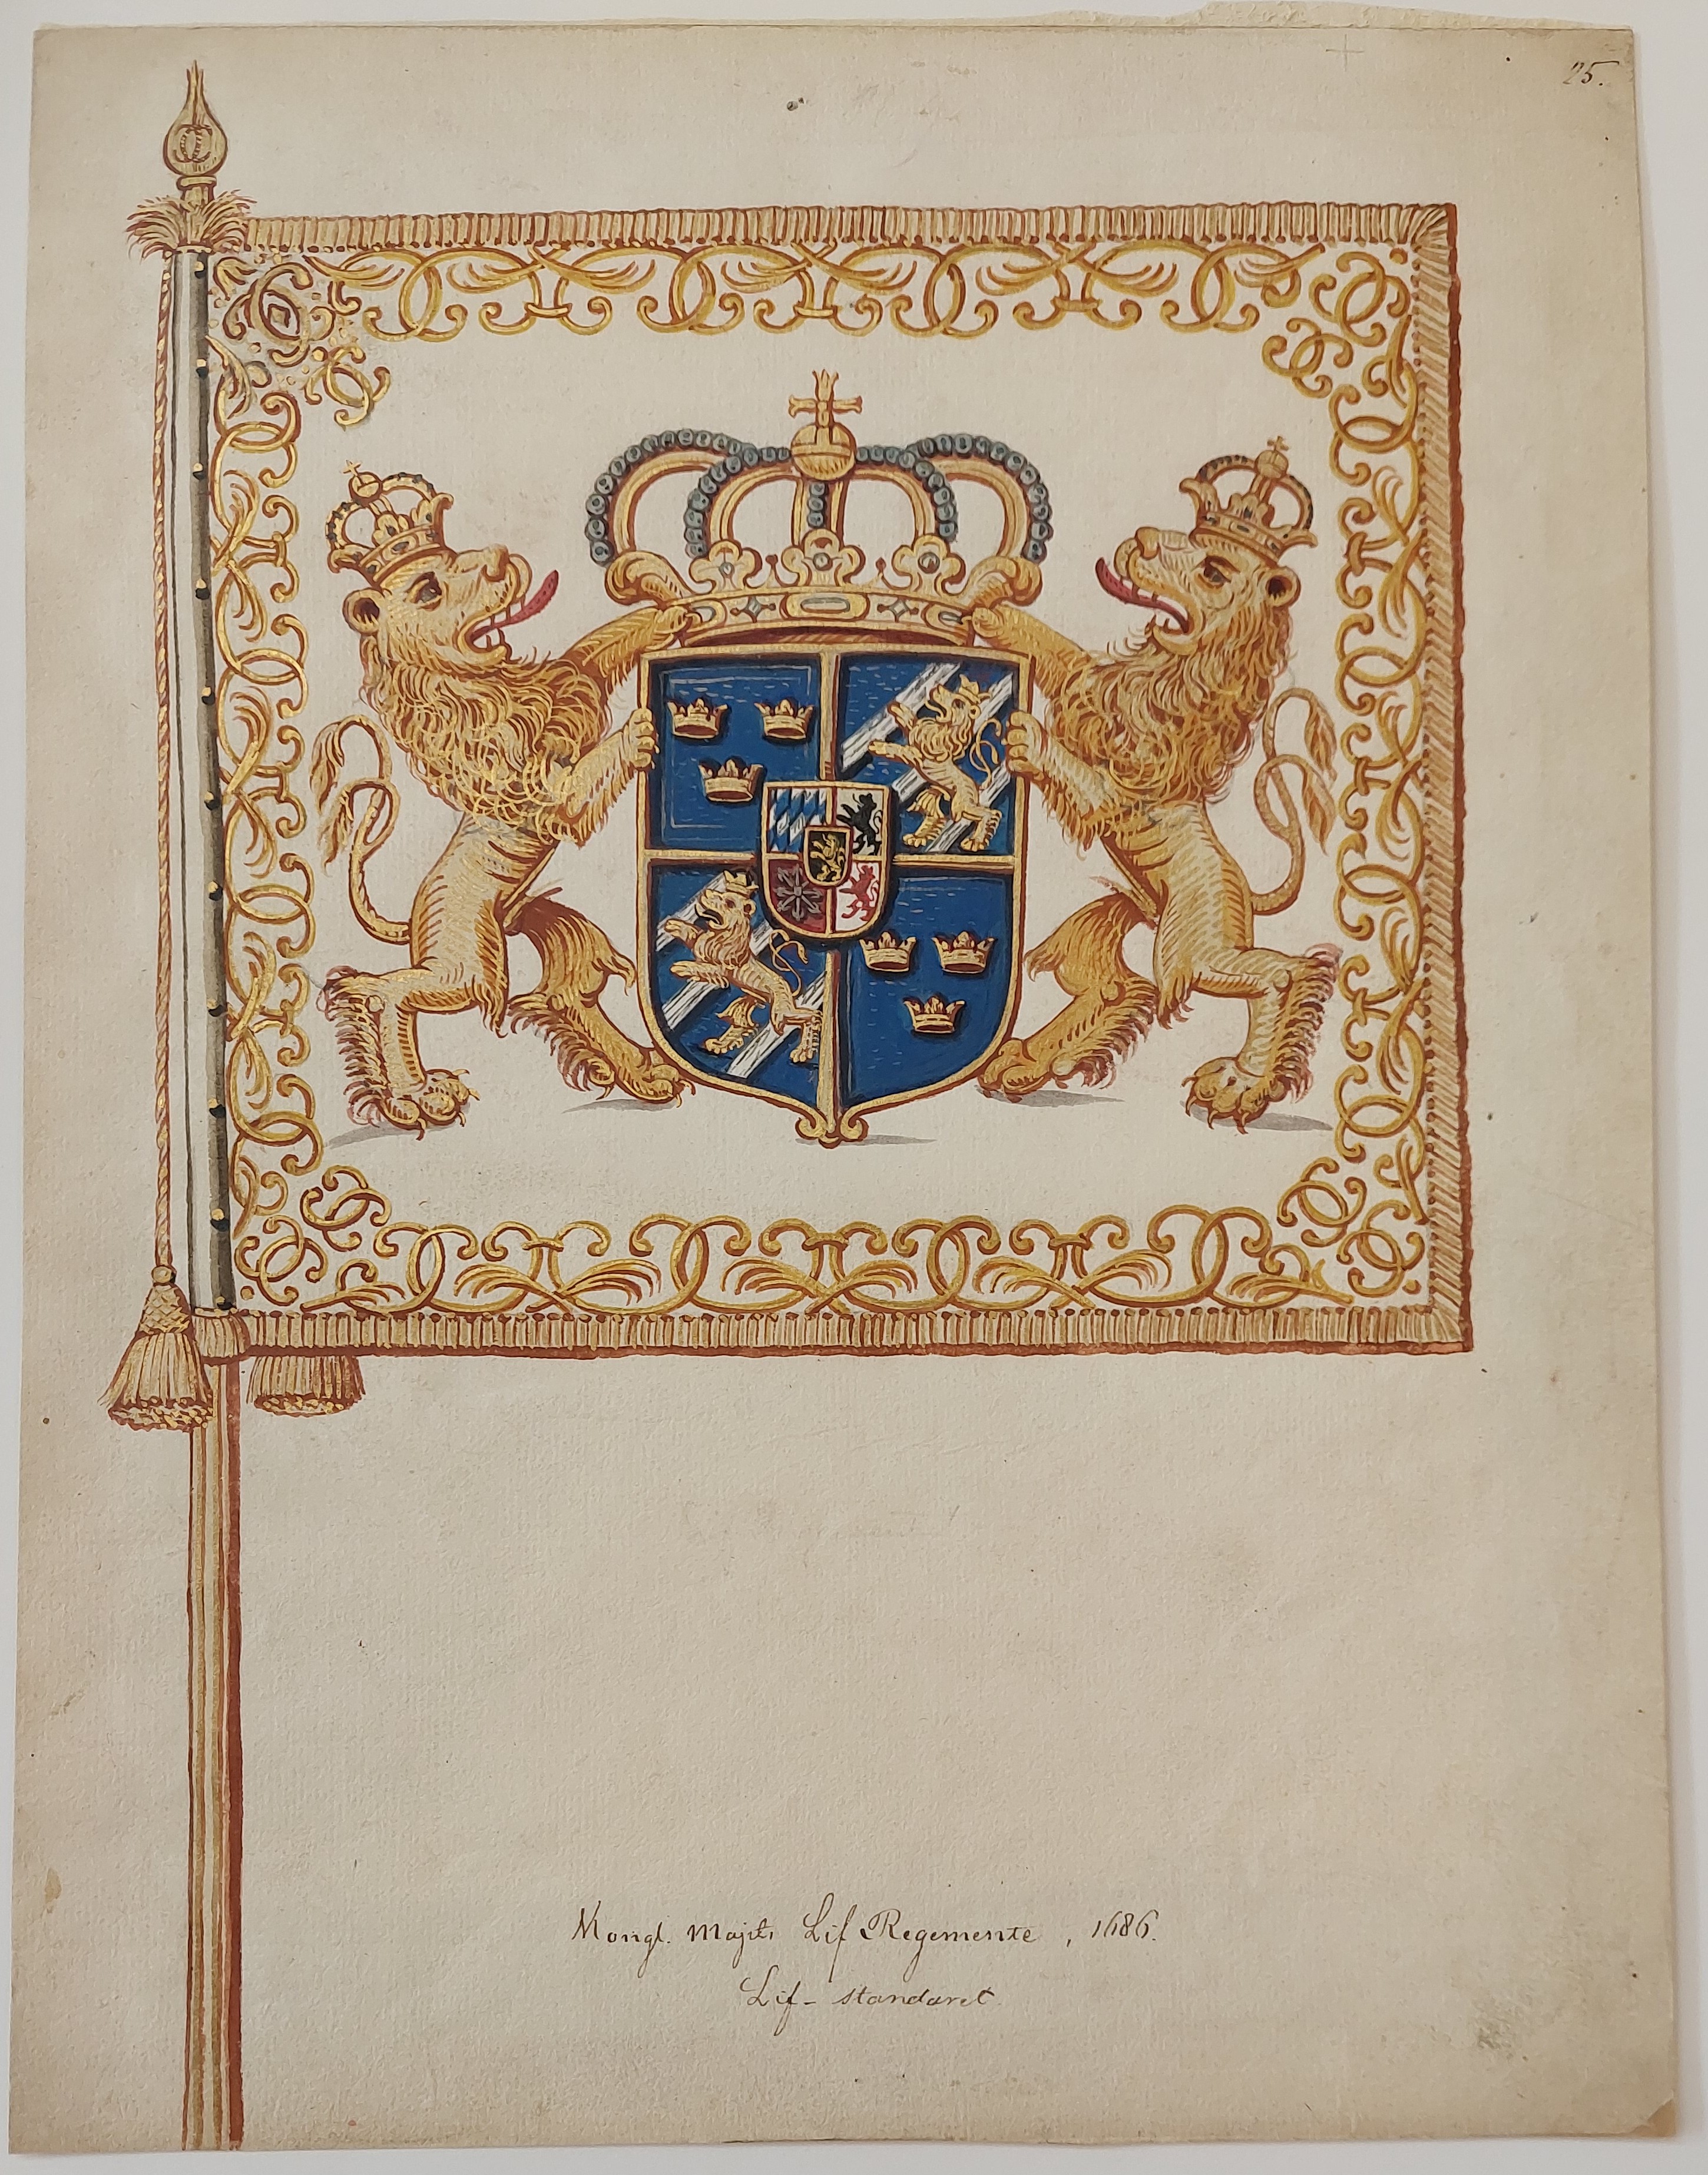 25.
Kongl. Majts Lif Regemente, 1686.
Lif-standaret